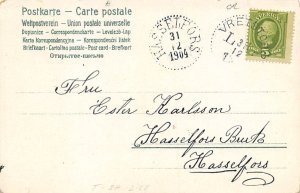 Postkarte - Carte postale
Weltpostverein - Union postale universelle
Dopisnice - Correspondenzkarte - Levelező-Lap
Karta korespondencyjna - Korespondenční lístek
Briefkaart - Cartolina postale - Post card - Brefkort
Открытое письмо
HASSELFORS
31
12
1904
SVERIGE
5
VRE
Fru
Ester Karlsson
Hasselfors Bruk
Hasselfors